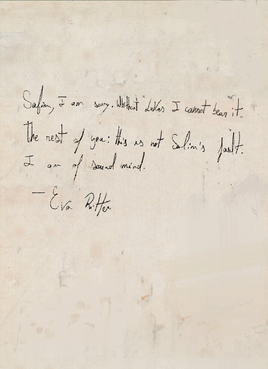 Safim, I am sorry. Without Lukas I cannot bear it.
The rest of you: this is not Salim's fault.
I am of sound mind.
— Eva Ritter